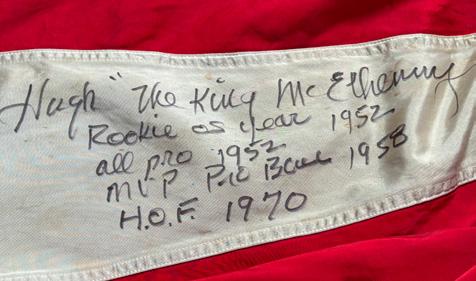 Hugh "The King McElhenny
Rookie of year 1952
all pro 1952
MVP Pro Bowl 1958
H.O.F. 1970